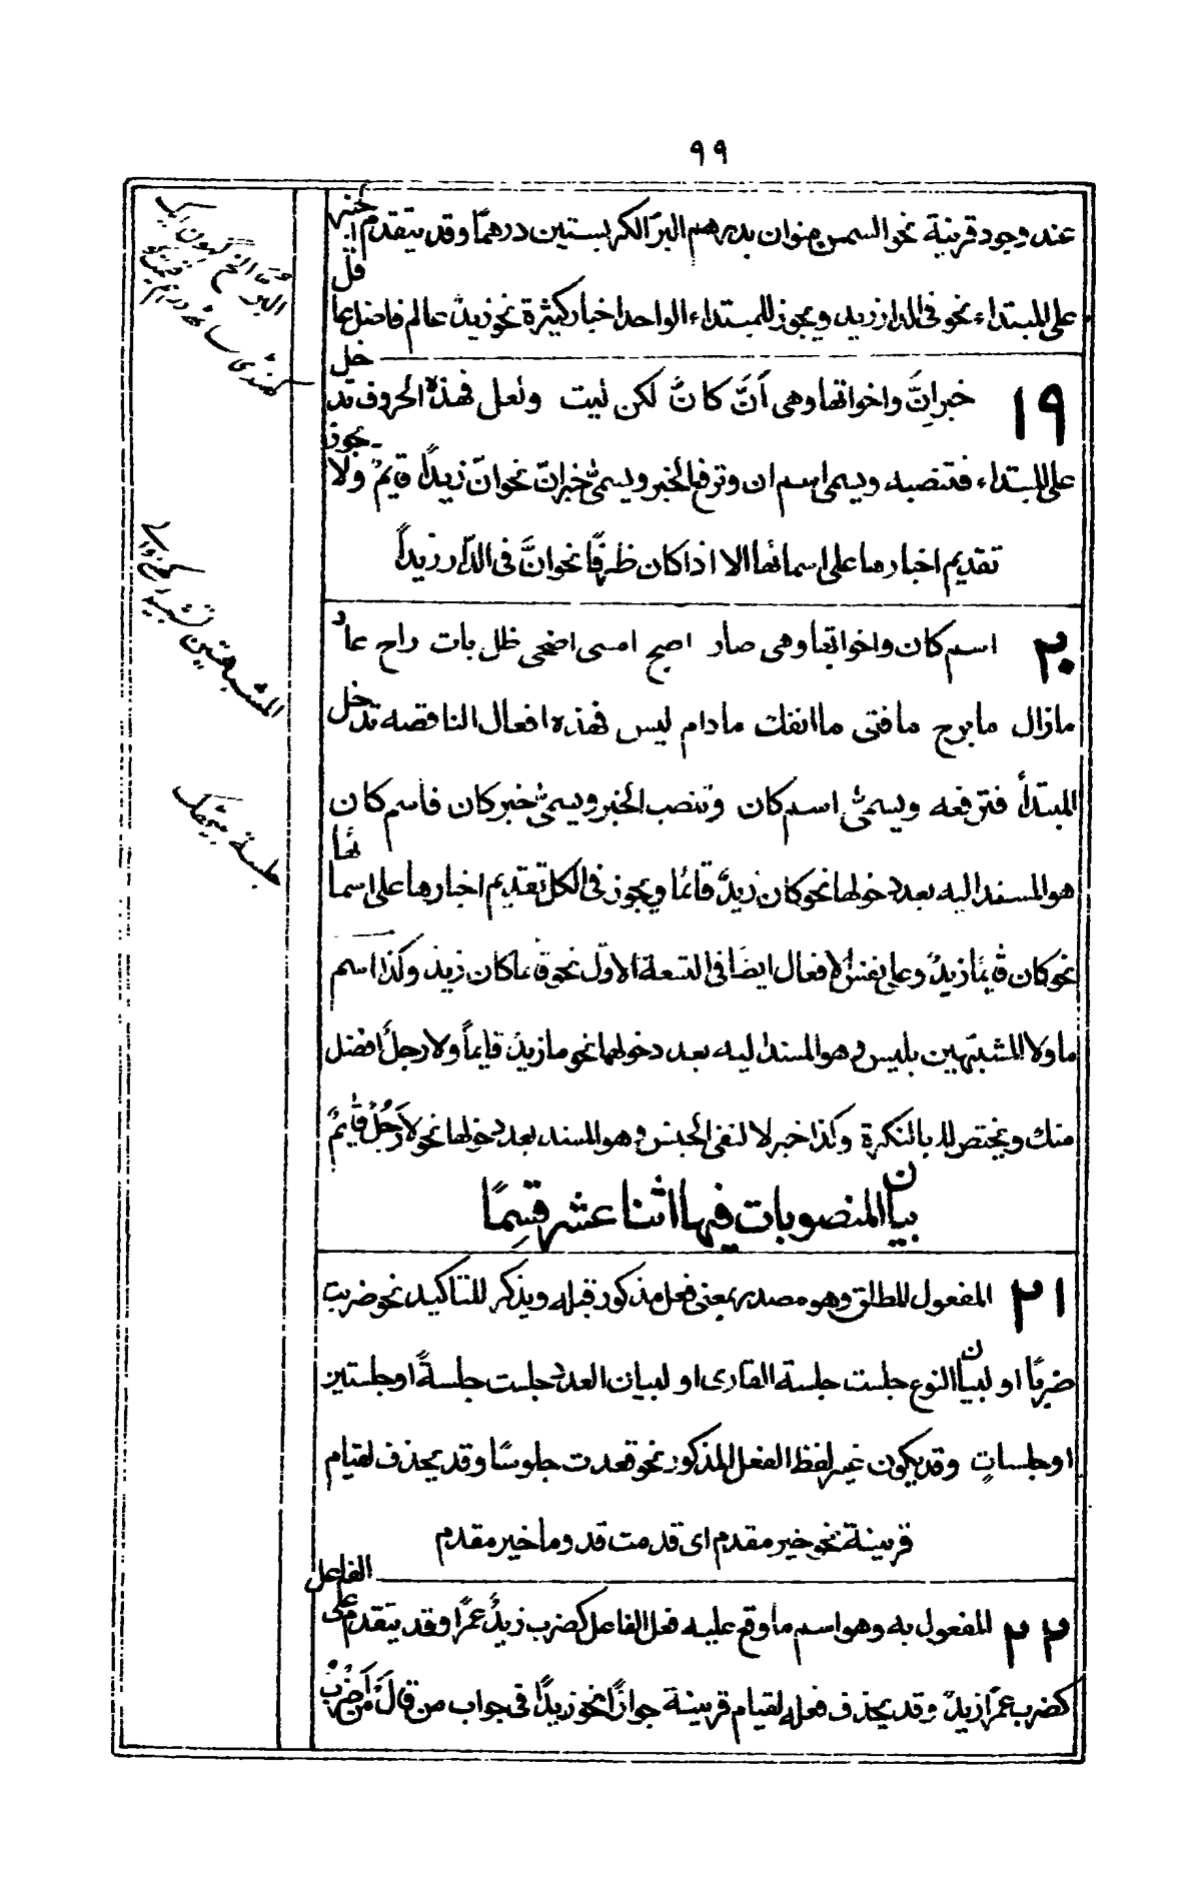 ٩٩
عند وجود قرينة نحو السمن منوان بدرهم البرّ الكر بستين درهمًا وقد يتقدم خبرها
على المبتداء نحو فى الدار زيد ويجوز للمبتداء الواحد اخبار كثيرة نحو زيدٌ عالم فاضل عاقل
١٩ خبر اِنَّ واخواتها وهى اَنَّ كانَّ لكن ليت ولعل فهذه الحروف تدخل
على المبتداء فتنصبه ويسمى اسم ان وترفع الخبر ويسمىٰ خبر انّ نحو انّ زيدًا قايمٌ ولا يجوز
تقديم اخبارها على اسمائها الا اذا كان ظرفًا نحو انَّ فى الدّار زيدًا
٢٠ اسم كان واخواتها وهى صار اصبح امسى اضحى ظل بات راح عاد
مازال مابرح مافتى ماانفك مادام ليس فهذه افعال الناقصه تدخل
المبتدأ فترفعه ويسمىٰ اسم كان وتنصب الخبر ويسمىٰ خبر كان فاسم كان
هو المسند اليه بعد دخولها نحو كان زيدٌ قائما ويجوز فى الكل تقديم اخبارها على اسمائها
نحو كان قايمًا زيدٌ وعلى نفس الافعال ايضًا فى التسعة الاوّل نحو قائما كان زيدٌ وكذا اسم
ما ولا المشبّهين بليس وهو المسند اليه بعد دخولهما نحو ما زيدٌ قايماً ولا رجلٌ افضل
منك ويختص لا بالنكرة وكذا خبر لا لنفى الجنس وهو المسند بعد دخولها نحو لا رَجُلَ قايمٌ
بيان المنصوبات فيها اثنا عشر قسِمًا
٢١ المفعول المطلق وهو مصدر بمعنى فعل مذكور قبله ويذكر للتاكيد نحو ضربت
ضربًا او لبيان النوع جلست جلسة القارى او لبيان العدد جلست جلسةً او جلستين
او جلساتٍ وقد يكون غير لفظ الفعل المذكور نحو قعدت جلوسًا وقد يحذف لقيام
قرينة نحو خير مقدم اى قدمت قدوما خير مقدم
٢٢ المفعول به وهو اسم ما وقع عليه فعل الفاعل كضرب زيدٌ عمرًا وقد يتقدم على الفاعل
كضرب عمرًا زيدٌ وقد يحذف فعله لقيام قرينة جوازًا نحو زيدًا فى جواب من قالَ مَن اَضْرِبُ
المشبهتين
جلسة